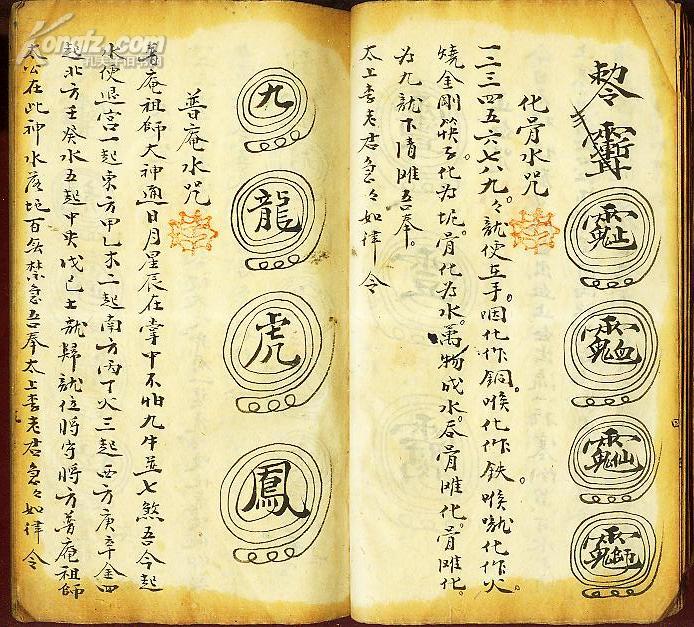 Kongfz.com
化骨水咒
一二三四五六七八九。々龍便在手。咽化作銅。喉化作鉄。喉嚨化作火
燒金剛筷子化為坭。骨化為水。萬物成水。吞骨难化。骨难化。
為九龍下清难吾奉。
太上李老君急々如律令
九
龍
虎
鳳
普庵水咒
普庵祖師大神通日月星辰在掌中不怕九牛並七煞吾今起
水便退宫一起東方甲乙木二起南方丙丁火三起西方庚辛金四
起北方壬癸水五起中央戊己土龍歸龍位將守將方普庵祖師
太公在此神水座坭百無禁忌吾奉太上李老君急々如律令